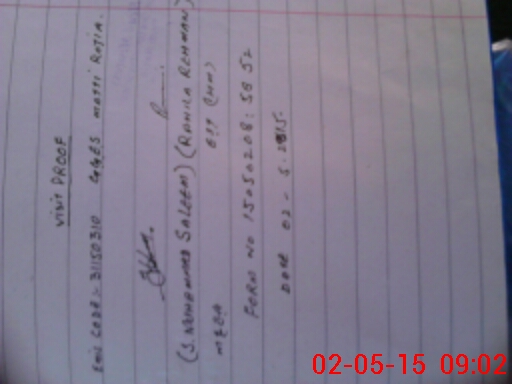 visit PROOF
EMIS CODE:- 31150310 GGES MATTI ROJIA.
(S. MUHAMMAD SALEEM) (RAHILA REHMAN)
MEEA
FORM NO 15050208:5852
DATE 02-5-2015.
02-05-15 09:02